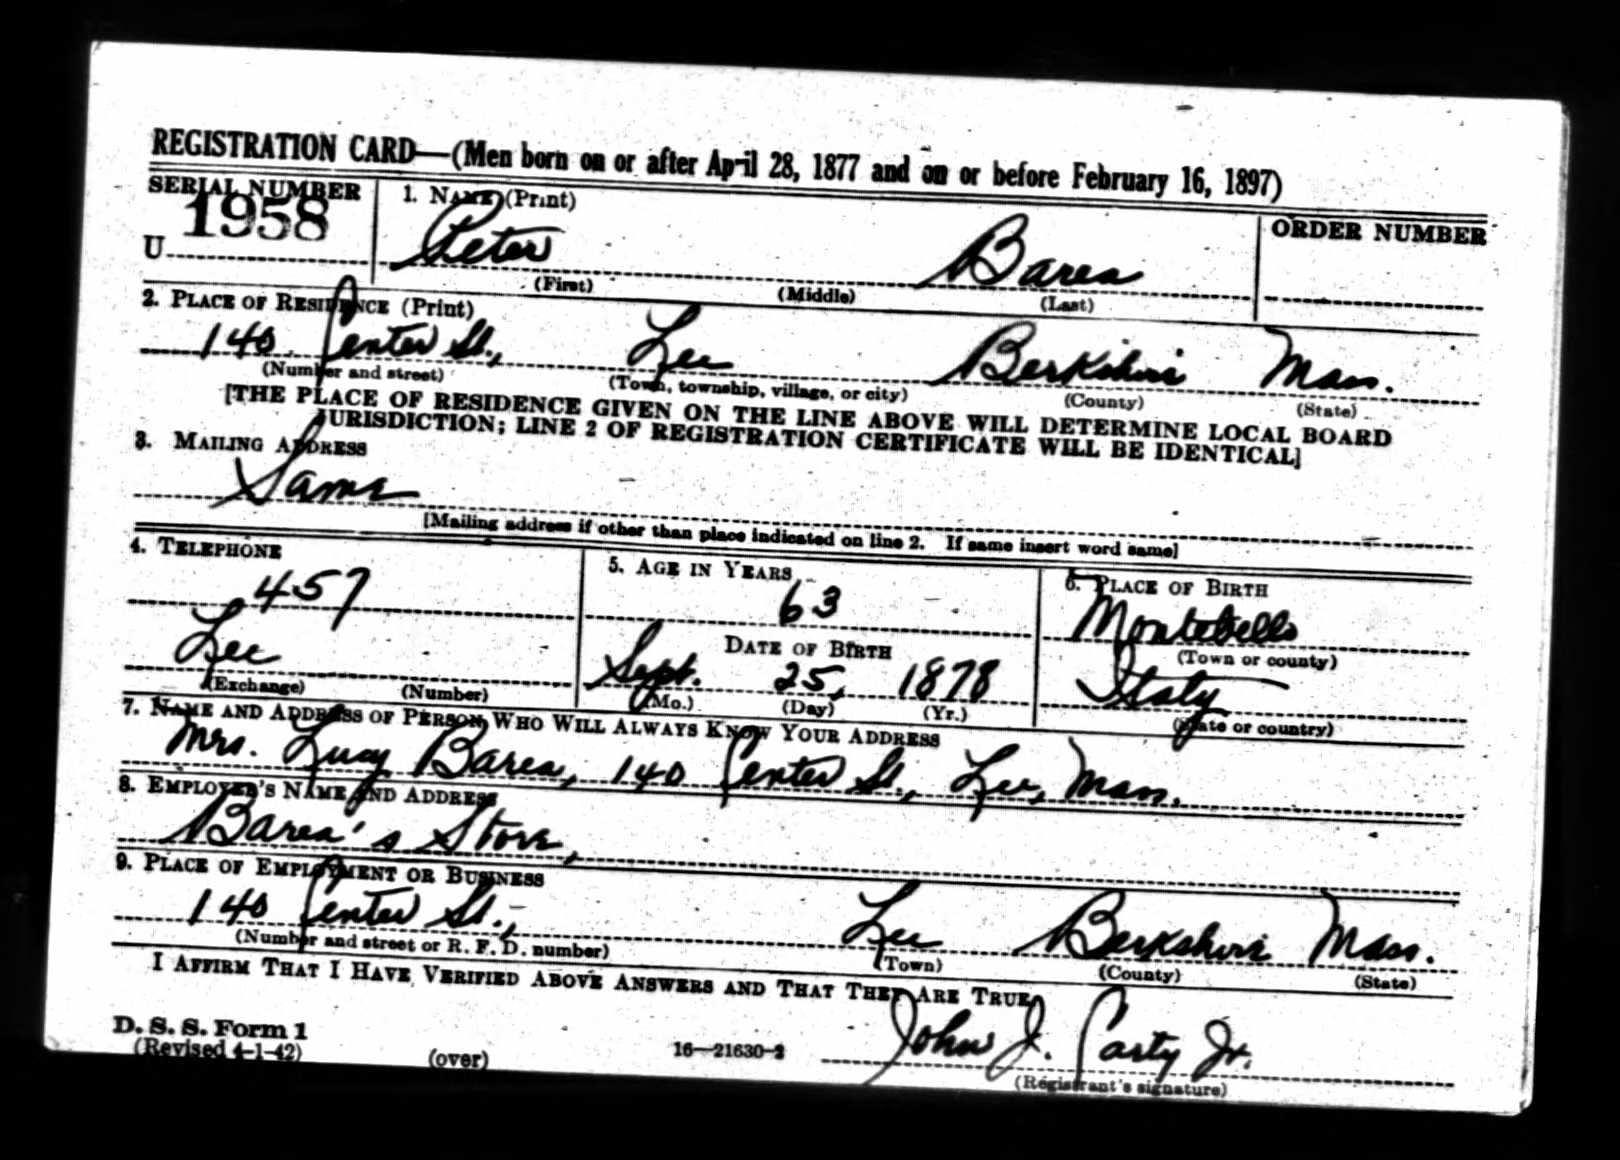 REGISTRATION CARD—(Men born on or after April 28, 1877 and on or before February 16, 1897)
SERIAL NUMBER
1. NAME (Print)
ORDER NUMBER
U 1958
Peter Barea
(First) (Middle) (Last)
2. PLACE OF RESIDENCE (Print)
140 Center St., Lee Berkshire Mass.
(Number and street) (Town, township, village, or city) (County) (State)
[THE PLACE OF RESIDENCE GIVEN ON THE LINE ABOVE WILL DETERMINE LOCAL BOARD
JURISDICTION; LINE 2 OF REGISTRATION CERTIFICATE WILL BE IDENTICAL]
3. MAILING ADDRESS
Same
[Mailing address if other than place indicated on line 2. If same insert word same]
4. TELEPHONE
457
Lee
(Exchange) (Number)
5. AGE IN YEARS
63
DATE OF BIRTH
Sept. 25, 1878
(Mo.) (Day) (Yr.)
6. PLACE OF BIRTH
Montebello
(Town or county)
Italy
(State or country)
7. NAME AND ADDRESS OF PERSON WHO WILL ALWAYS KNOW YOUR ADDRESS
Mrs. Lucy Barea, 140 Center St., Lee, Mass.
8. EMPLOYER'S NAME AND ADDRESS
Barea's Store,
9. PLACE OF EMPLOYMENT OR BUSINESS
140 Center St., Lee Berkshire Mass.
(Number and street or R. F. D. number) (Town) (County) (State)
I AFFIRM THAT I HAVE VERIFIED ABOVE ANSWERS AND THAT THEY ARE TRUE
John J. Carty Jr.
D. S. S. Form 1
(Revised 4-1-42) (over) 16—21630-2
(Registrant's signature)